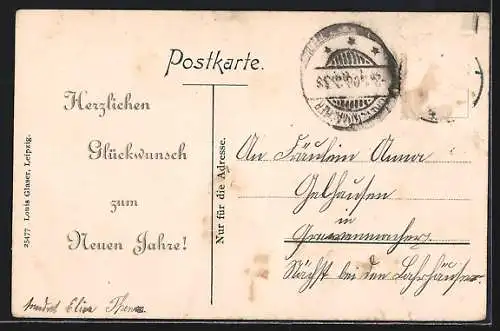 Postkarte.
Herzlichen
Glückwunsch
zum
Neuen Jahre!
25477 Louis Glaser, Leipzig.
Nur für die Adresse.
An Fräulein Anna
Gelhausen
in
Grevenmacher
Nächst bei den
Elisa